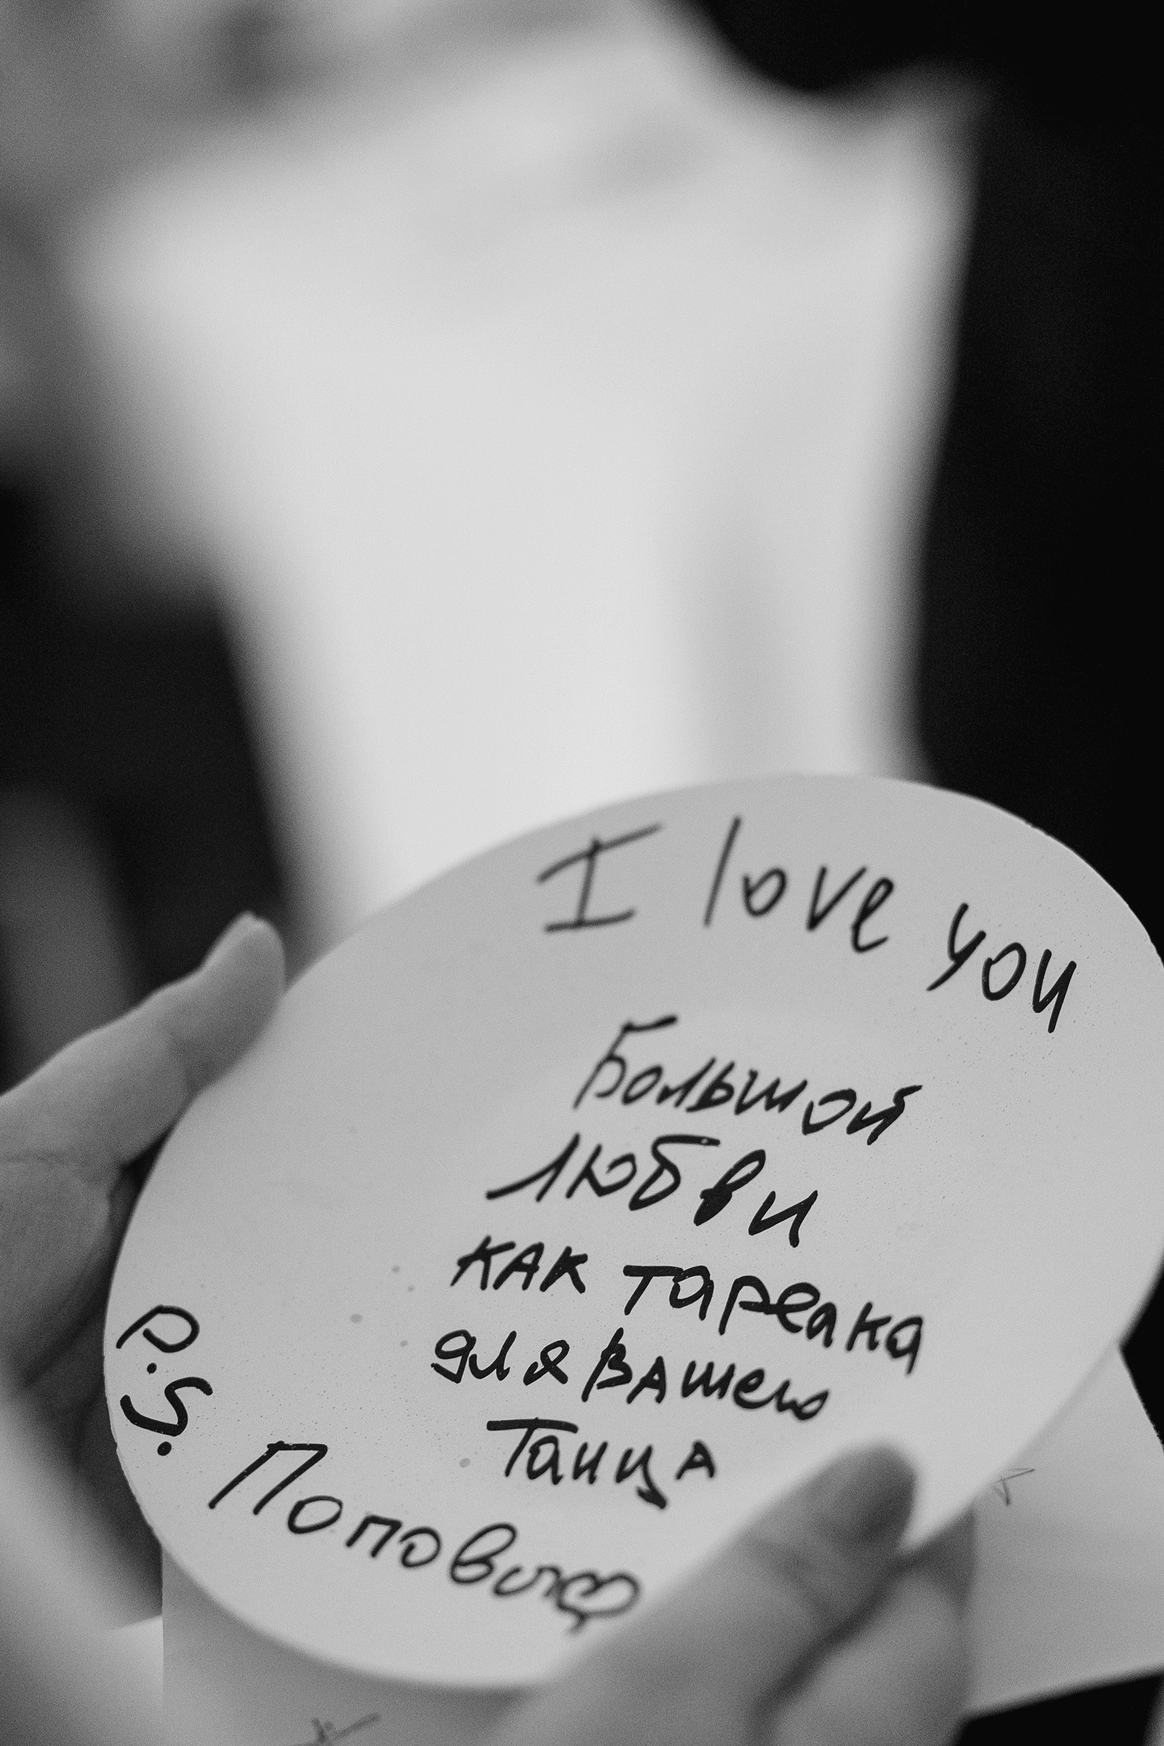 I love you
Большой
любви
как тарелка
для вашего
танца
P.S.